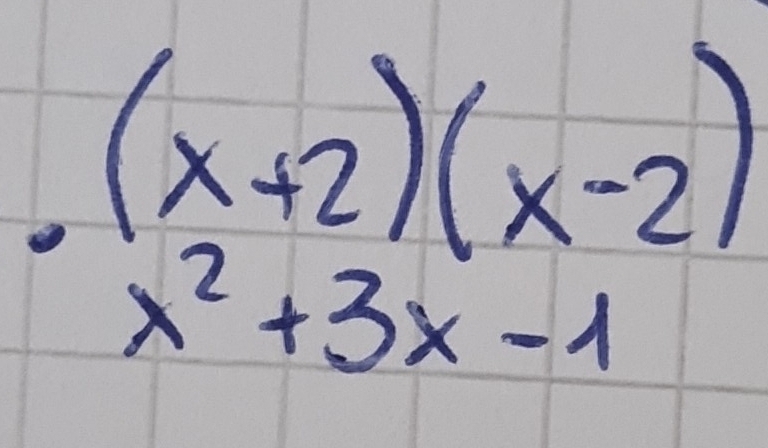 (x+2)(x-2)
x² +3x -1